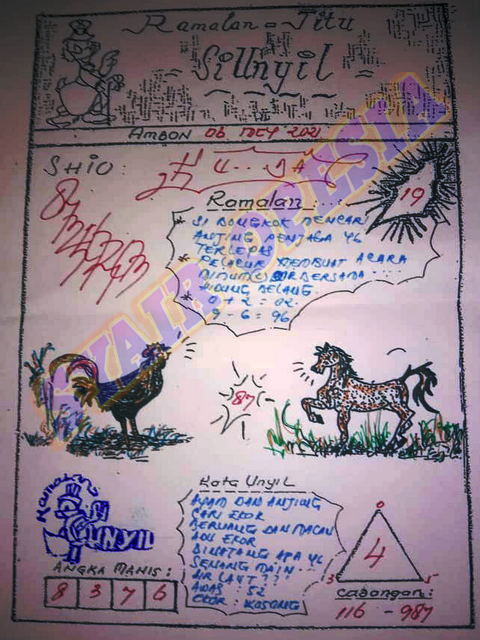 Ramalan = Jitu
Si Unyil
AMBON 06 2021
SHIO:
19
Ramalan:
* SI BONGKOK MENCARI
ANJING PENJAGA YG
TERLEPAS
* PELACUR MEMBUAT ACARA
MINUM BERSAMA
HIDUNG BELANG
* 0 + 2 = 02
9 - 6 = 96
87
Kata Unyil
AYAM DAN ANJING
CARI EKOR
BERUANG DAN MACAN
ADU EKOR
BINATANG APA YG
SENANG MAIN
AIR LAUT ??
AWAS : 52
EKOR : KOSONG
Ramalan
UNYIL
ANGKA MANIS:
8 3 7 6
0
4
3 5
Cabangan:
116 - 987